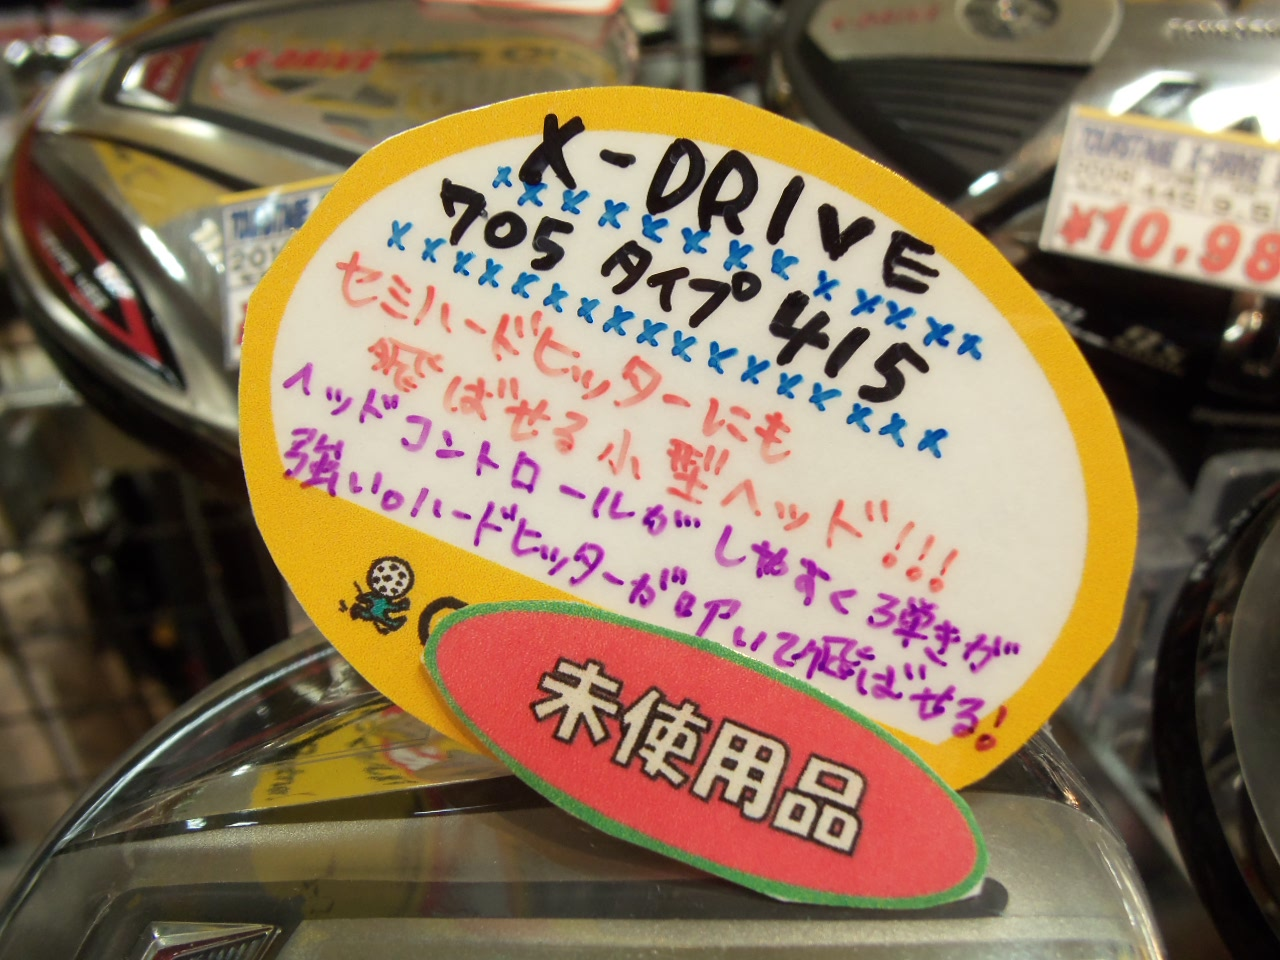 X-DRIVE
705 タイプ 415
セミハードヒッターにも
飛ばせる小型ヘッド!!!
ヘッドコントロールがしやすく弾きが
強い。ハードヒッターが叩いて飛ばせる!
未使用品
X-DRIVE
TOURSTAGE X-DRIVE
¥10,98